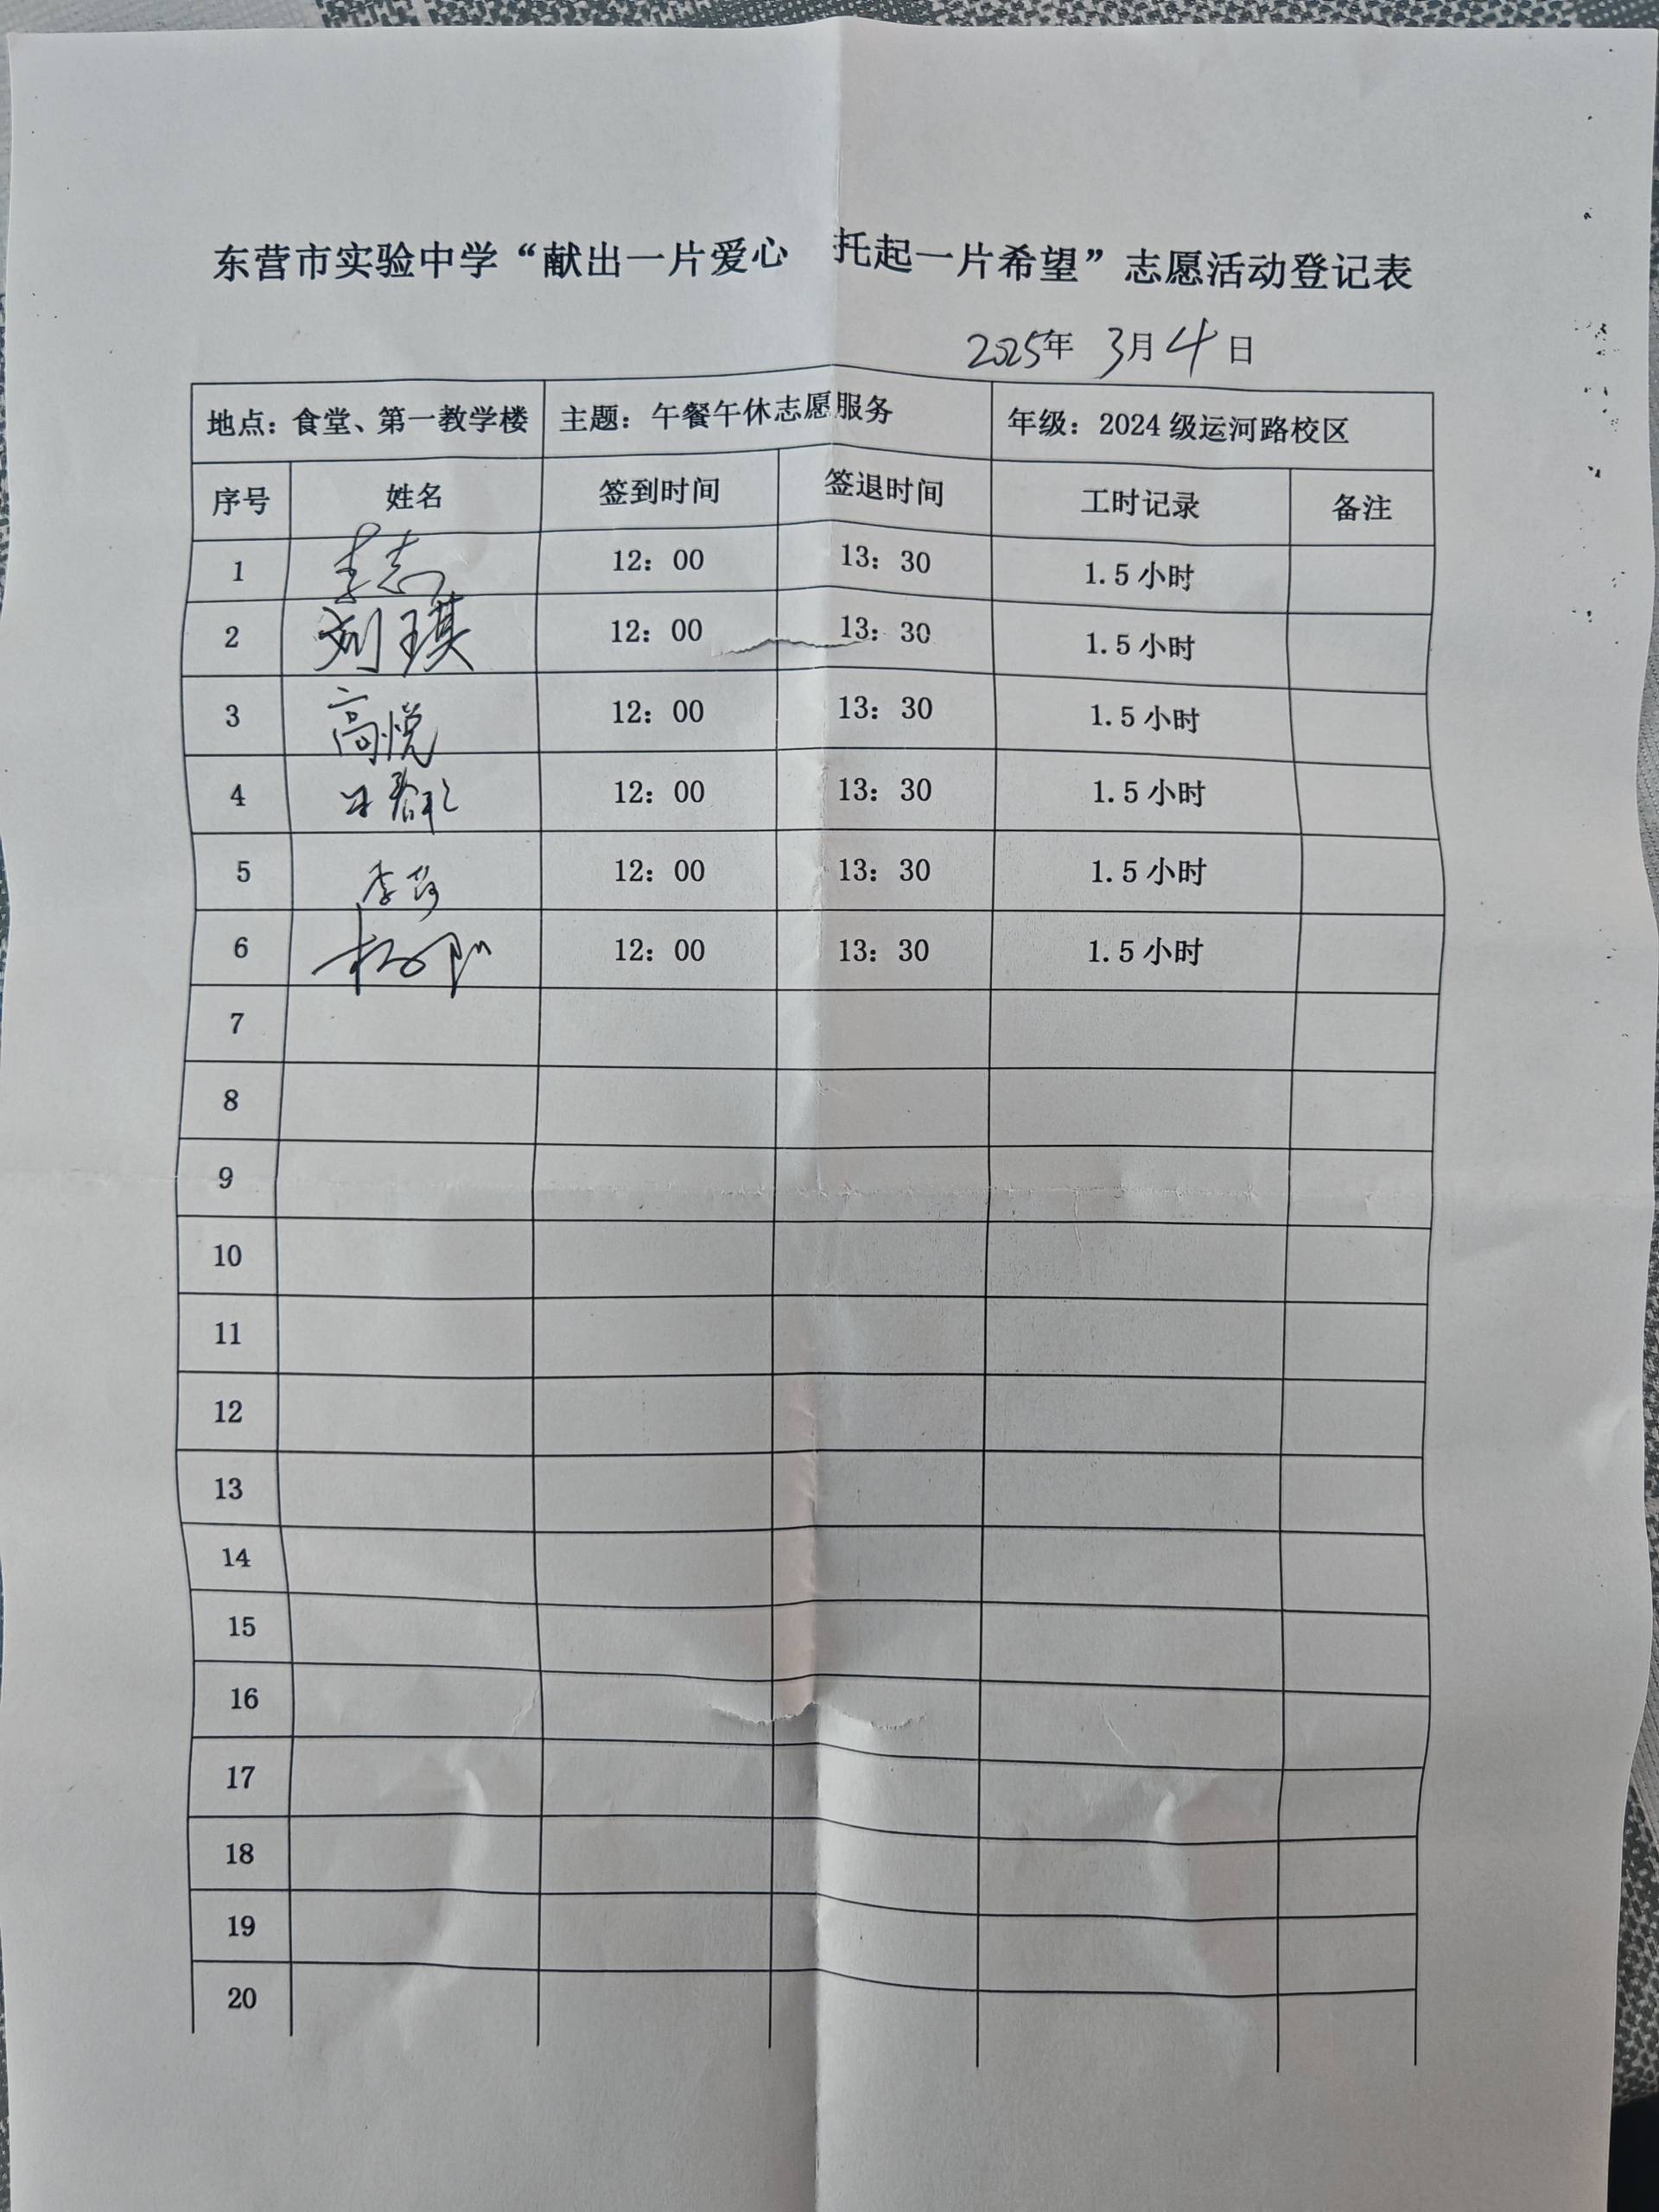 东营市实验中学“献出一片爱心 托起一片希望”志愿活动登记表
2025年 3月4日
地点：食堂、第一教学楼 主题：午餐午休志愿服务 年级：2024级运河路校区
序号 姓名 签到时间 签退时间 工时记录 备注
1 李志 12：00 13：30 1.5小时
2 刘琪 12：00 13：30 1.5小时
3 高悦 12：00 13：30 1.5小时
4 12：00 13：30 1.5小时
5 李 12：00 13：30 1.5小时
6 杨 12：00 13：30 1.5小时
7
8
9
10
11
12
13
14
15
16
17
18
19
20